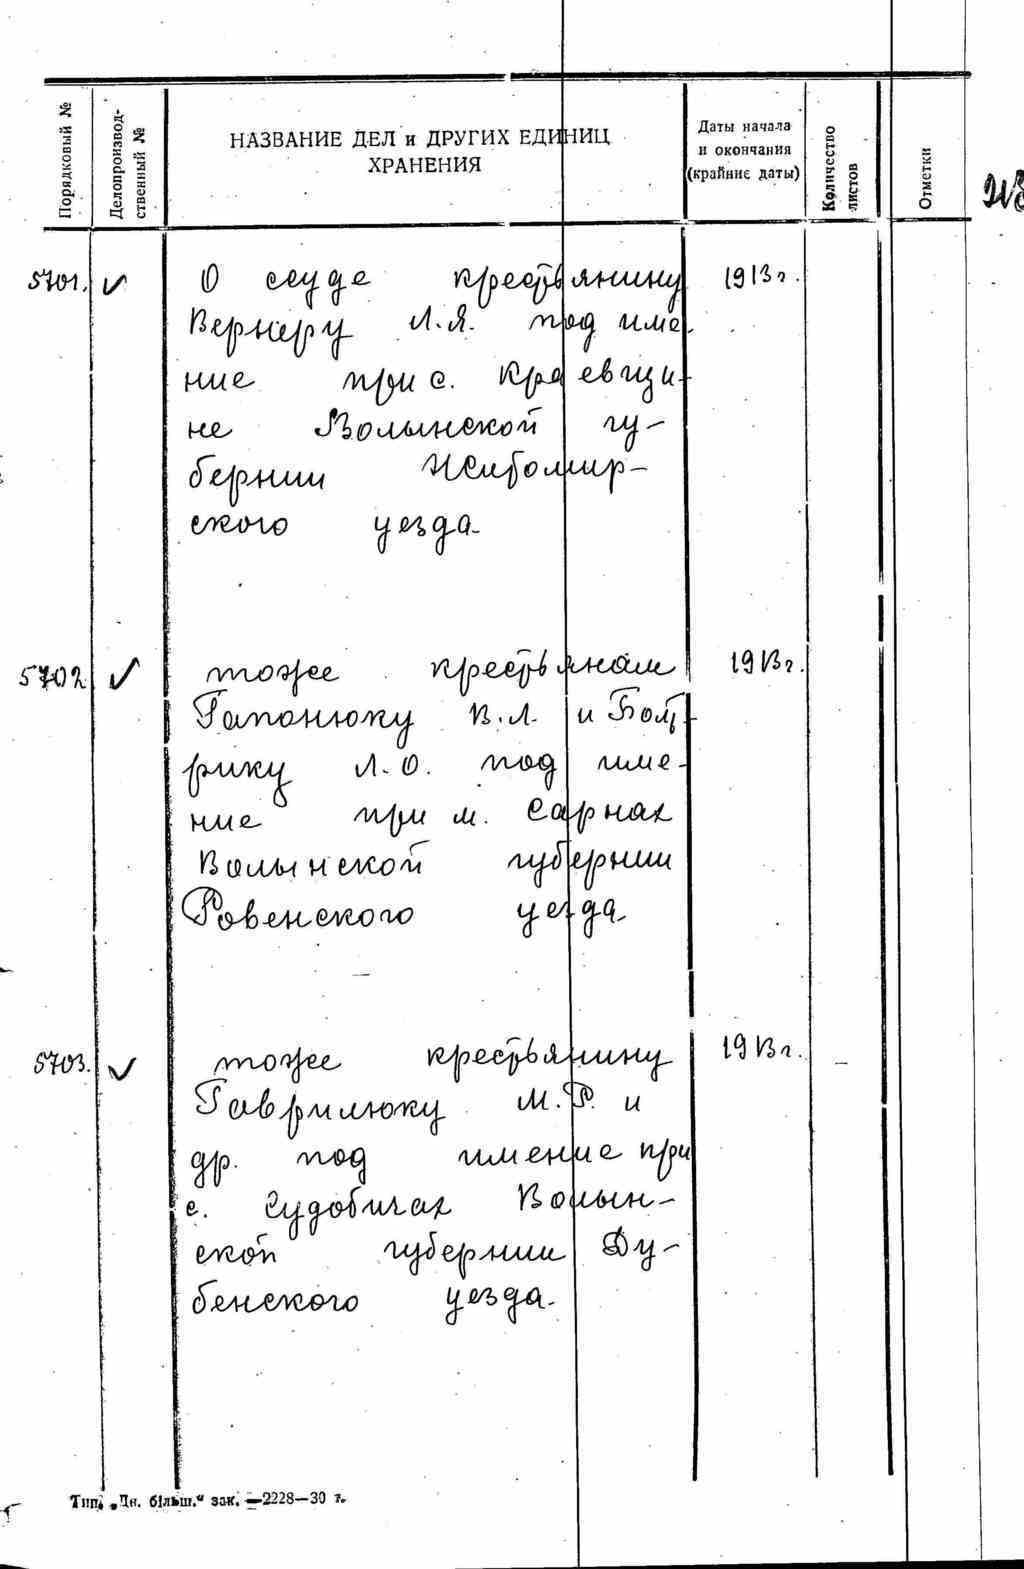 Порядковый №
Делопроизвод-
ственный №
НАЗВАНИЕ ДЕЛ и ДРУГИХ ЕДИНИЦ
ХРАНЕНИЯ
Даты начала
и окончания
(крайние даты)
Количество
листов
Отметки
5701. О ссуде крестьянину 1913 г.
Вернеру Л.Я. под име-
ние при с. Краевщи-
не Волынской гу-
бернии Житомир-
ского уезда.
5702 тоже крестьянам 1913 г.
Гапонюку В.Л. и Бол-
рику Л.О. под име-
ние при м. Сарнах
Волынской губернии
Ровенского уезда.
5703. тоже крестьянину 1913 г.
Гаврилюку М.Р. и
др. под имение при
с. Судобичах Волын-
ской губернии Ду-
бенского уезда.
Тип. „Дн. більш.“ зак. —2228—30 т.